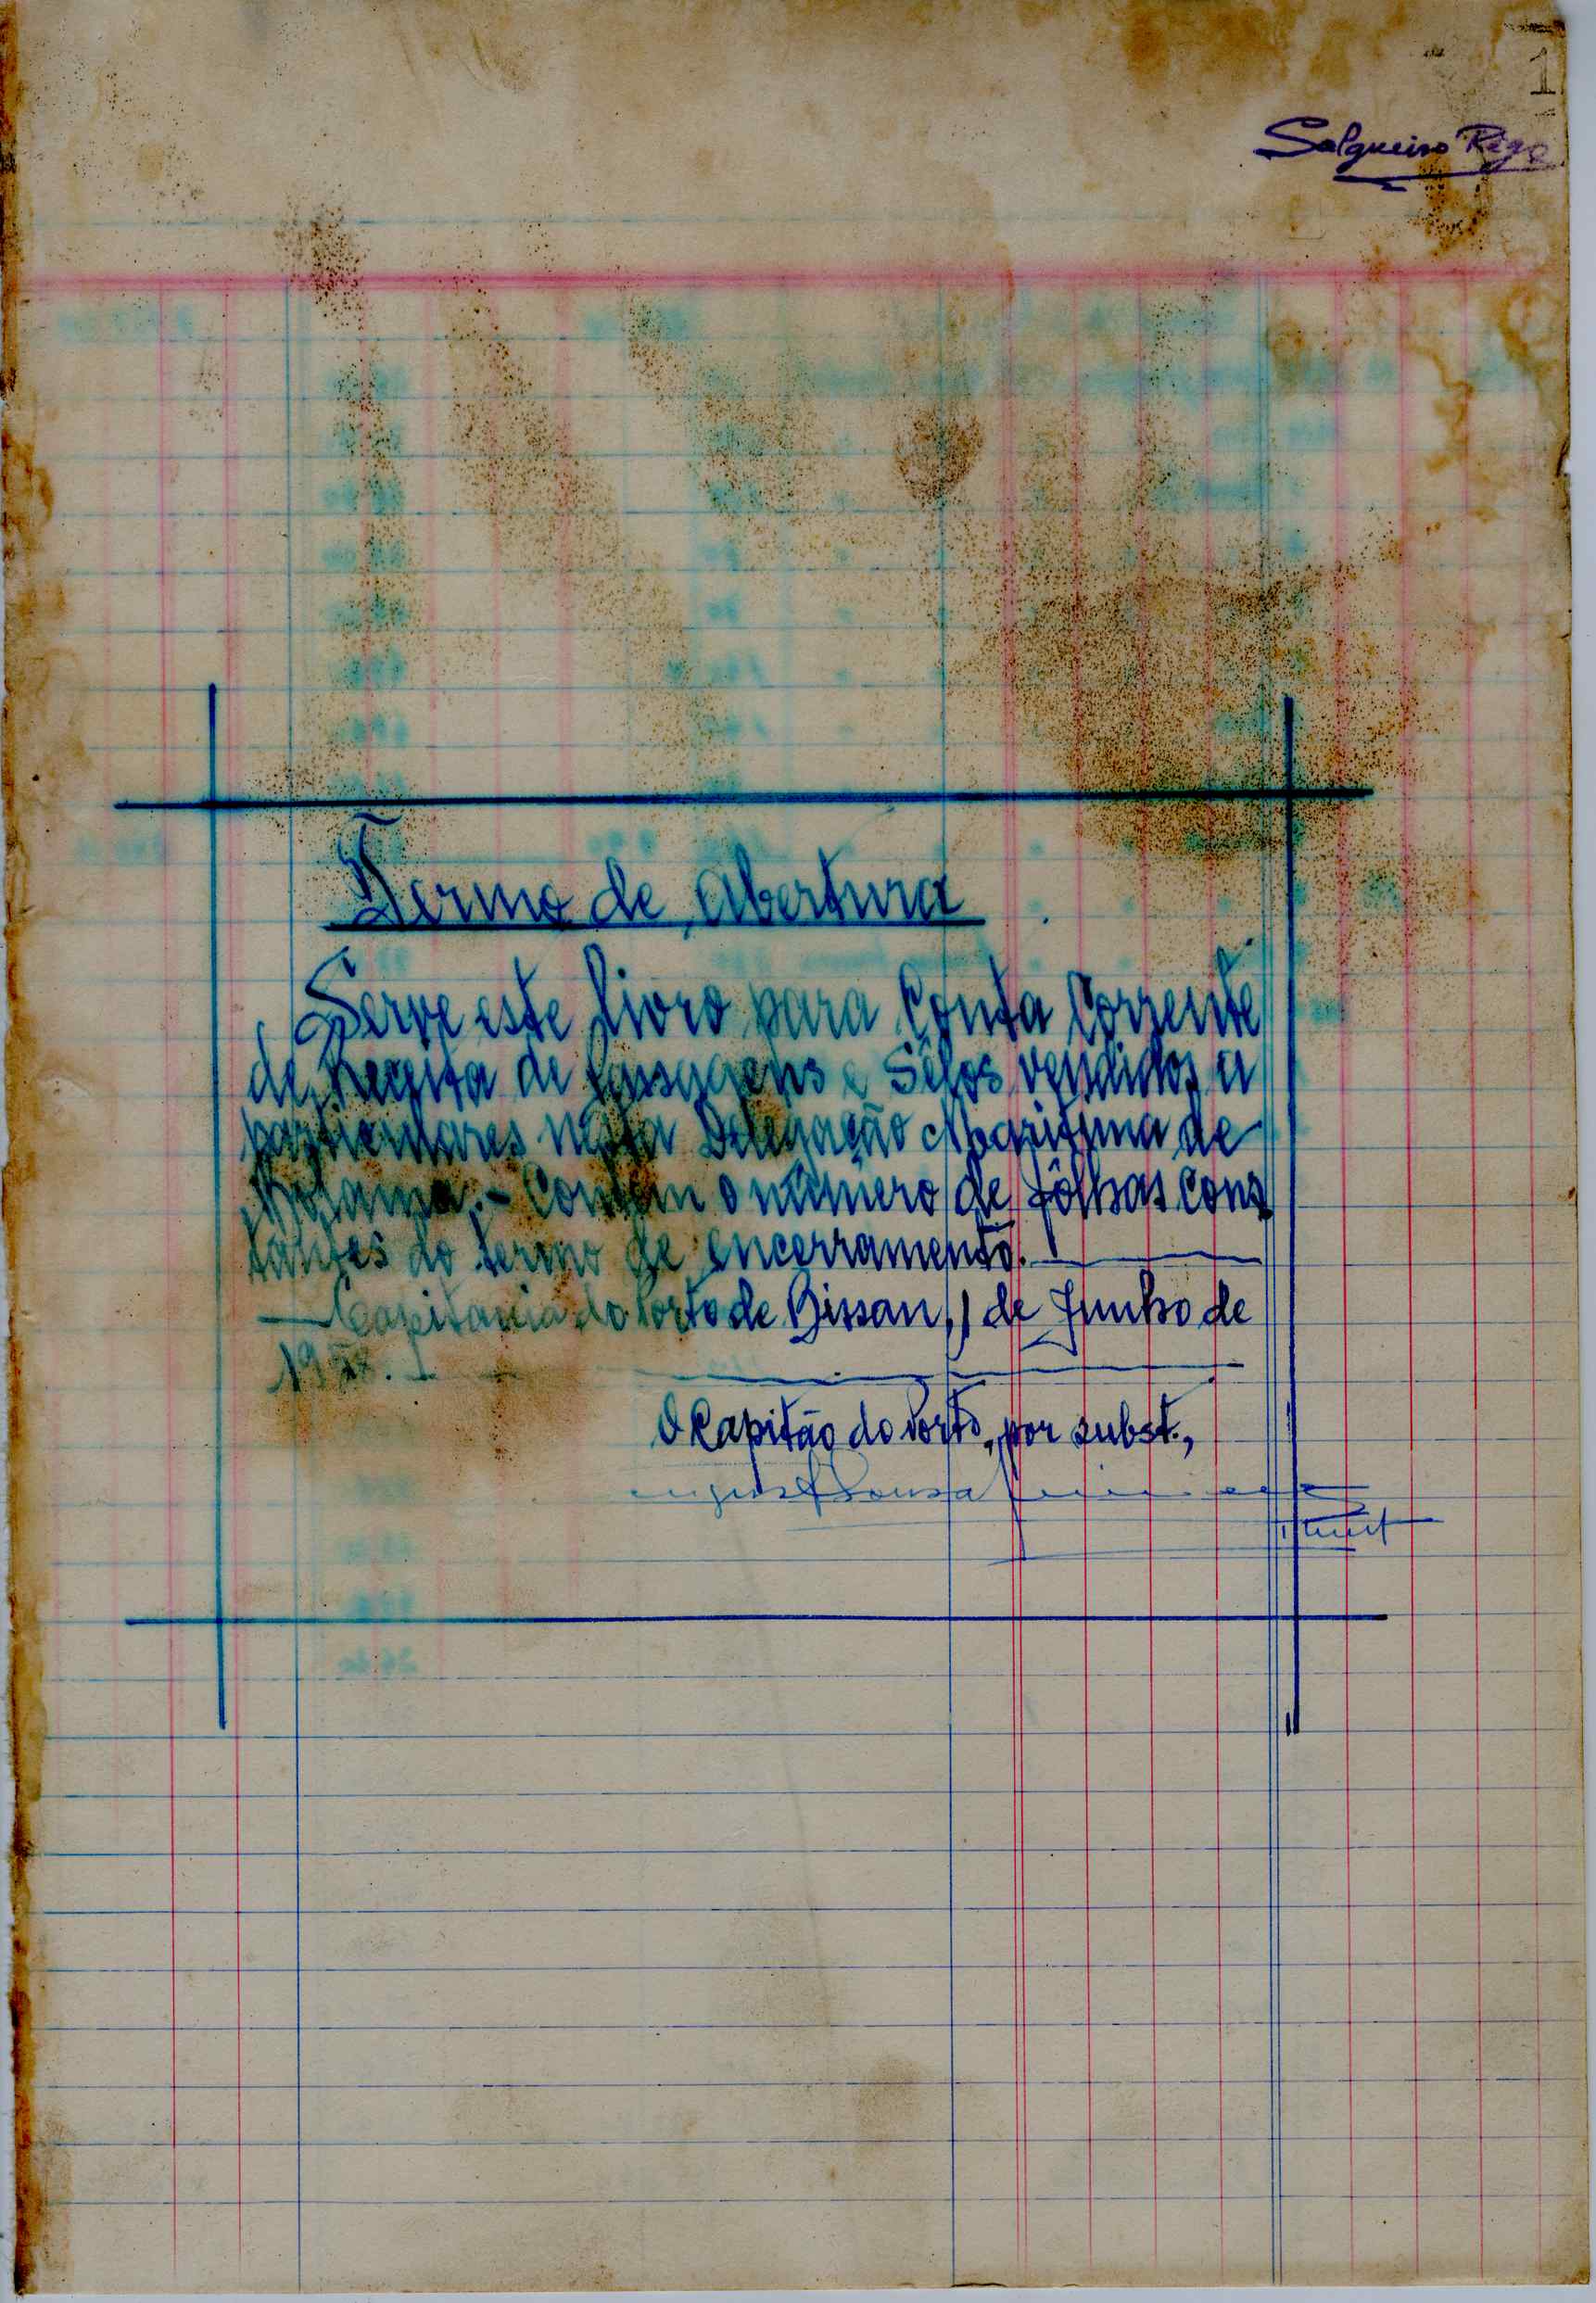 1
Salgueiro Rêgo
Termo de abertura
Serve este livro para Conta Corrente
de Receita de Passagens e Sêlos vendidos a
particulares nesta Delegação Maritima de
Bolama. - Contem o número de fôlhas cons
tantes do termo de encerramento.
Capitania do Porto de Bissau, 1 de Junho de
O Capitão do Porto, por subst.,
Sousa